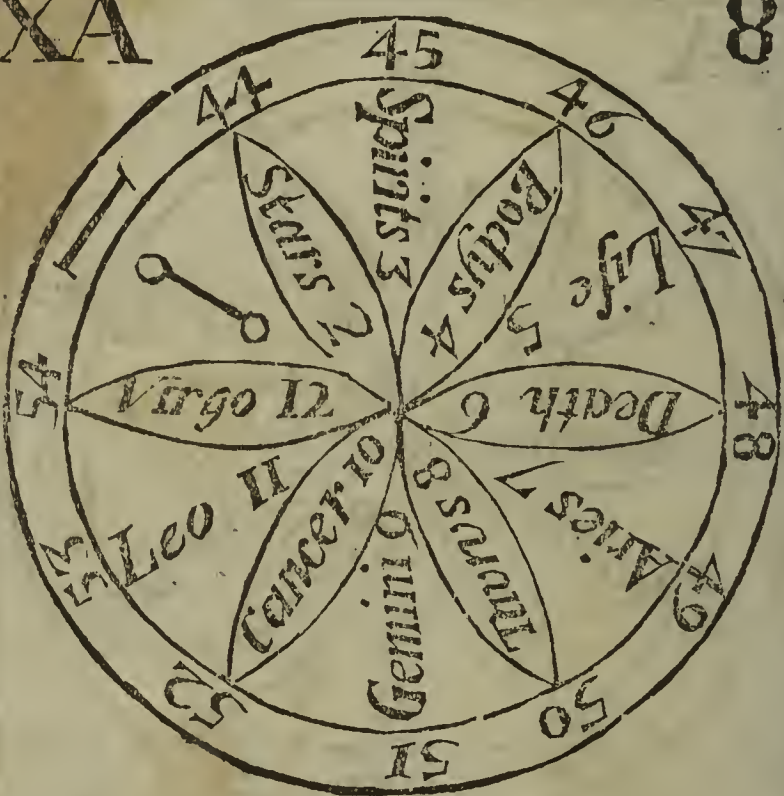 XA
8
44
45
46
47
48
49
50
51
52
53
54
Stars 2
Spirits 3
Bodys 4
Life 5
Death 6
Aries 7
Taurus 8
Gemini 9
Cancer 10
Leo 11
Virgo 12